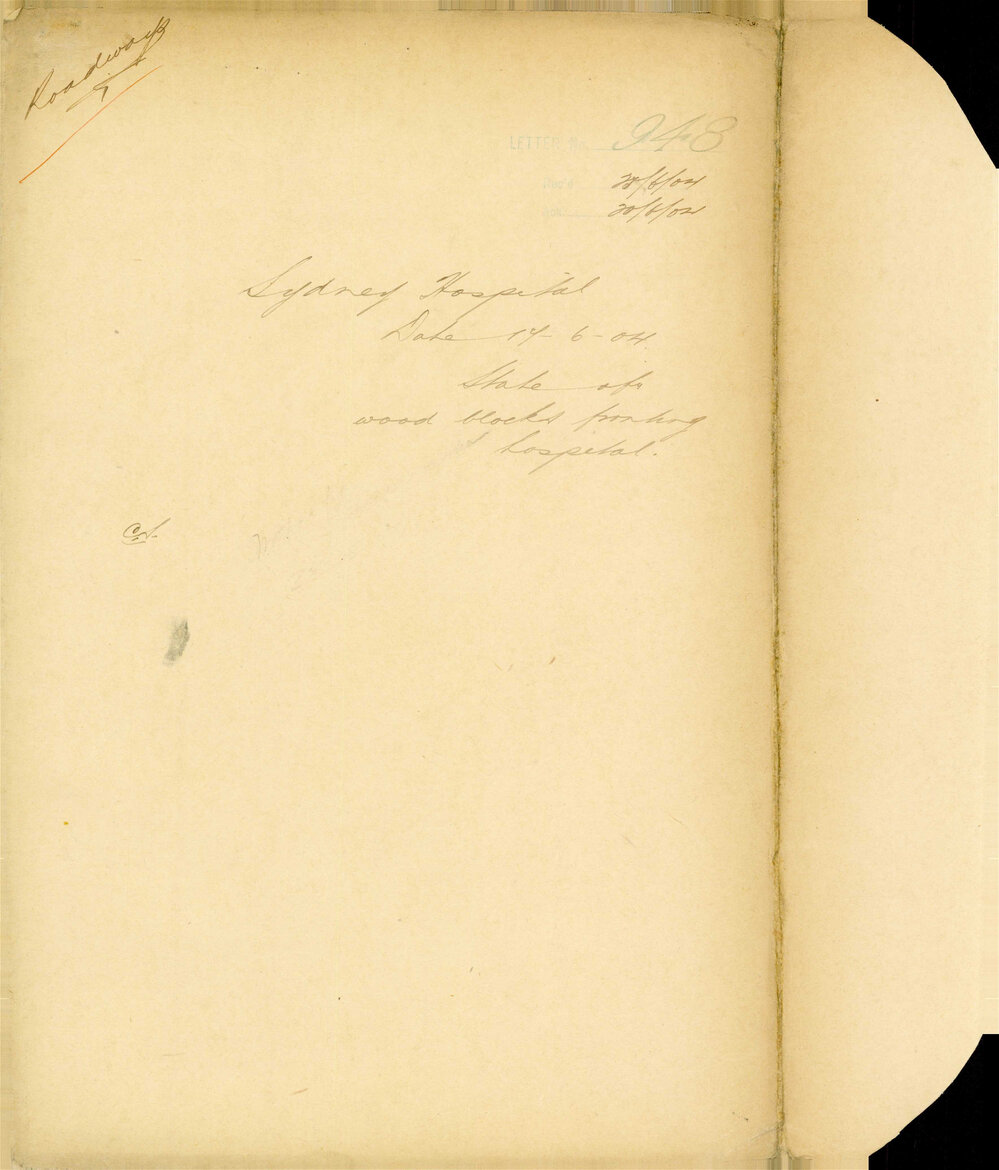 Roadways
LETTER No. 948
Rec'd 20/6/04
20/6/04
Sydney Hospital
Date 17-6-04
State of
wood blocks fronting
hospital.